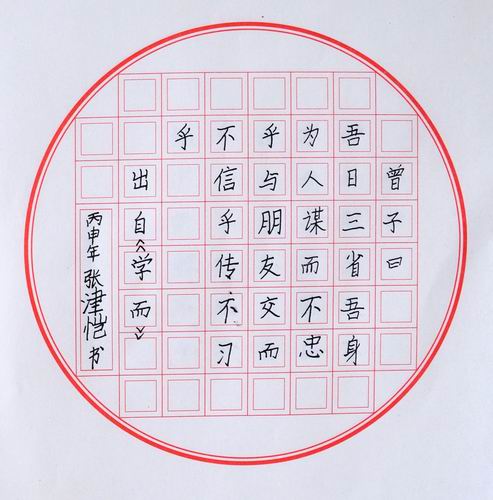 曾子曰
吾日三省吾身
为人谋而不忠
乎与朋友交而
不信乎传不习
乎
出自《学而》
丙申年张津恺书